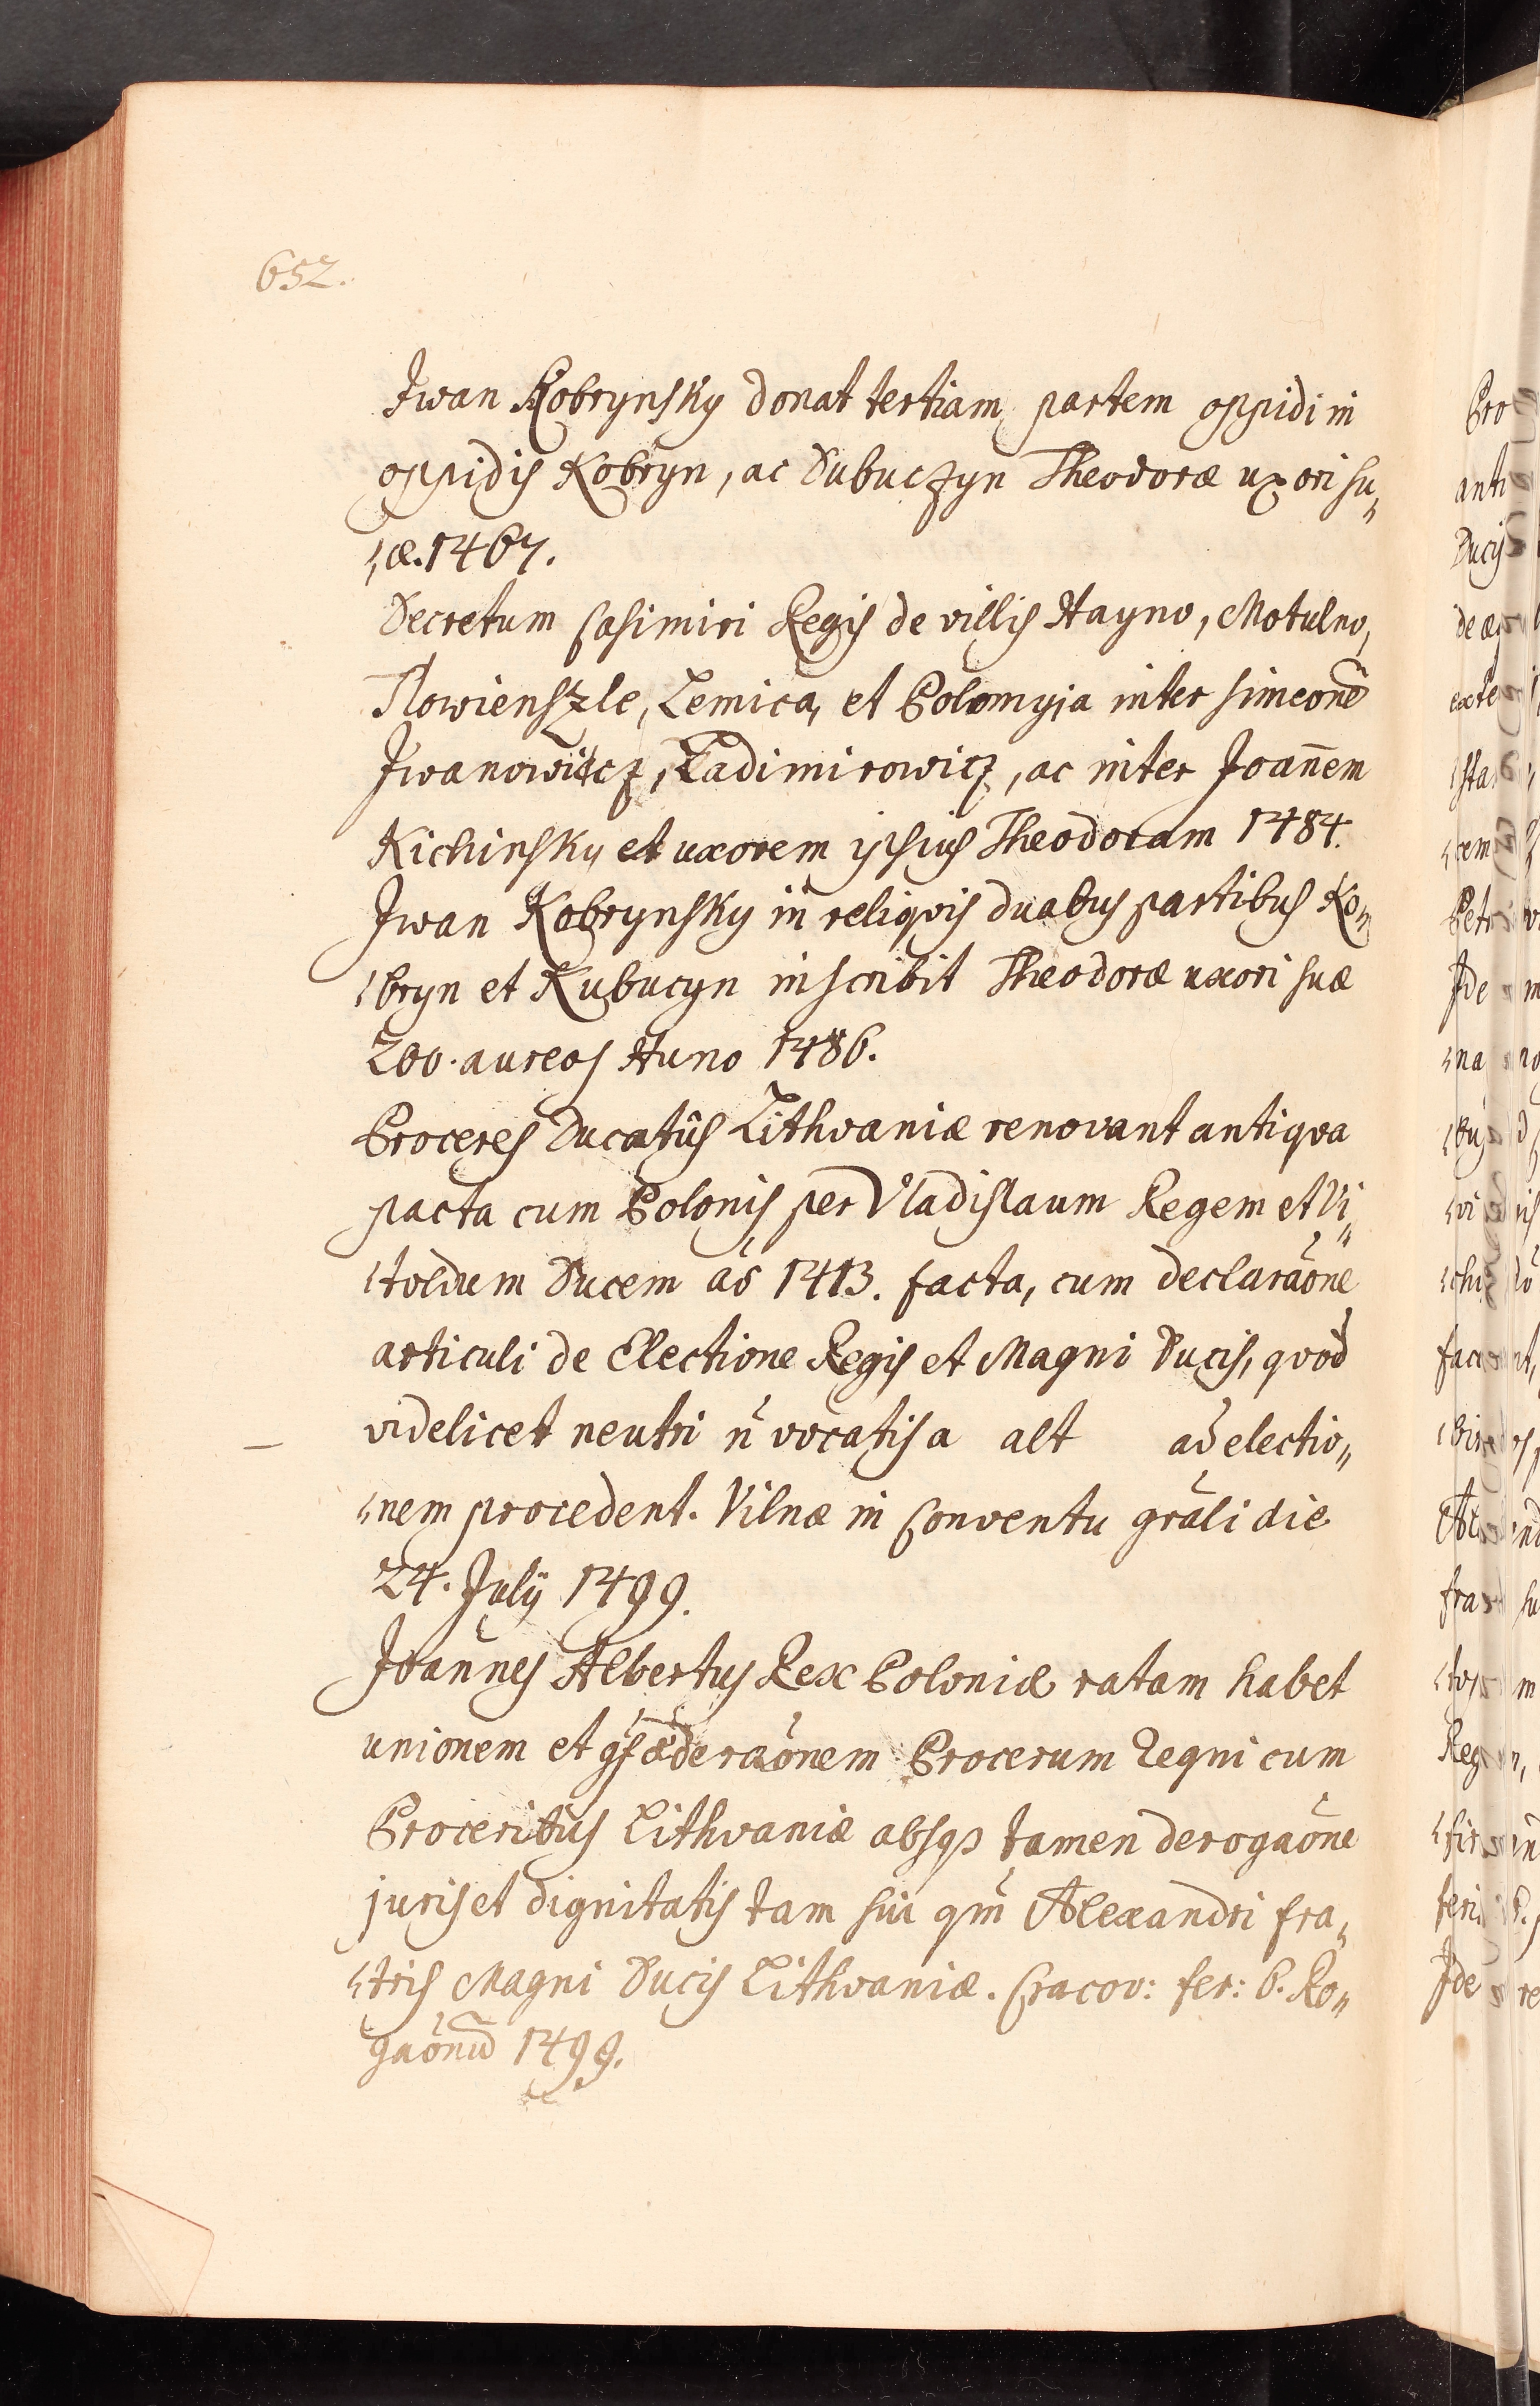 652.
Iwan Kobrynsky donat tertiam partem oppidi in
oppidis Kobryn, ac Dubuczyn Theodoræ uxori su„
„æ. 1467.
Decretum Casimiri Regis de villis Hayno, Motulno,
Nowienszle, Lemica, et Polomyja inter Simeonē
Iwanowitcz, Ladimirowicz, ac inter Joan̄em
Kichinsky et uxorem ipsius Theodoram 1484.
Iwan Kobrynsky in reliqvis duabus partibus Ko„
„bryn et Kubucyn inscribit Theodoræ uxori suæ
200. aureos Huno 1486.
Proceres Ducatûs Lithvaniæ renovant antiqva
pacta cum Polonis per Vladislaum Regem et Vi„
„toldum Ducem aō 1413. facta, cum declaraōne
articuli de Electione Regis et Magni Ducis, qvod
videlicet neutri n̄ vocatis a alt ad electio„
„nem procedent. Vilnæ in Conventu grāli die
24. Julÿ 1499.
Joannes Albertus Rex Poloniæ ratam habet
unionem et fæderaōnem Procerum Regni cum
Proceribus Lithvaniæ absqȝ tamen derogaōne
juris et dignitatis tam sui qm̄ Alexandri fra„
„tris Magni Ducis Lithvaniæ. Cracov: fer: 6. Ro„
gaōnū 1499.